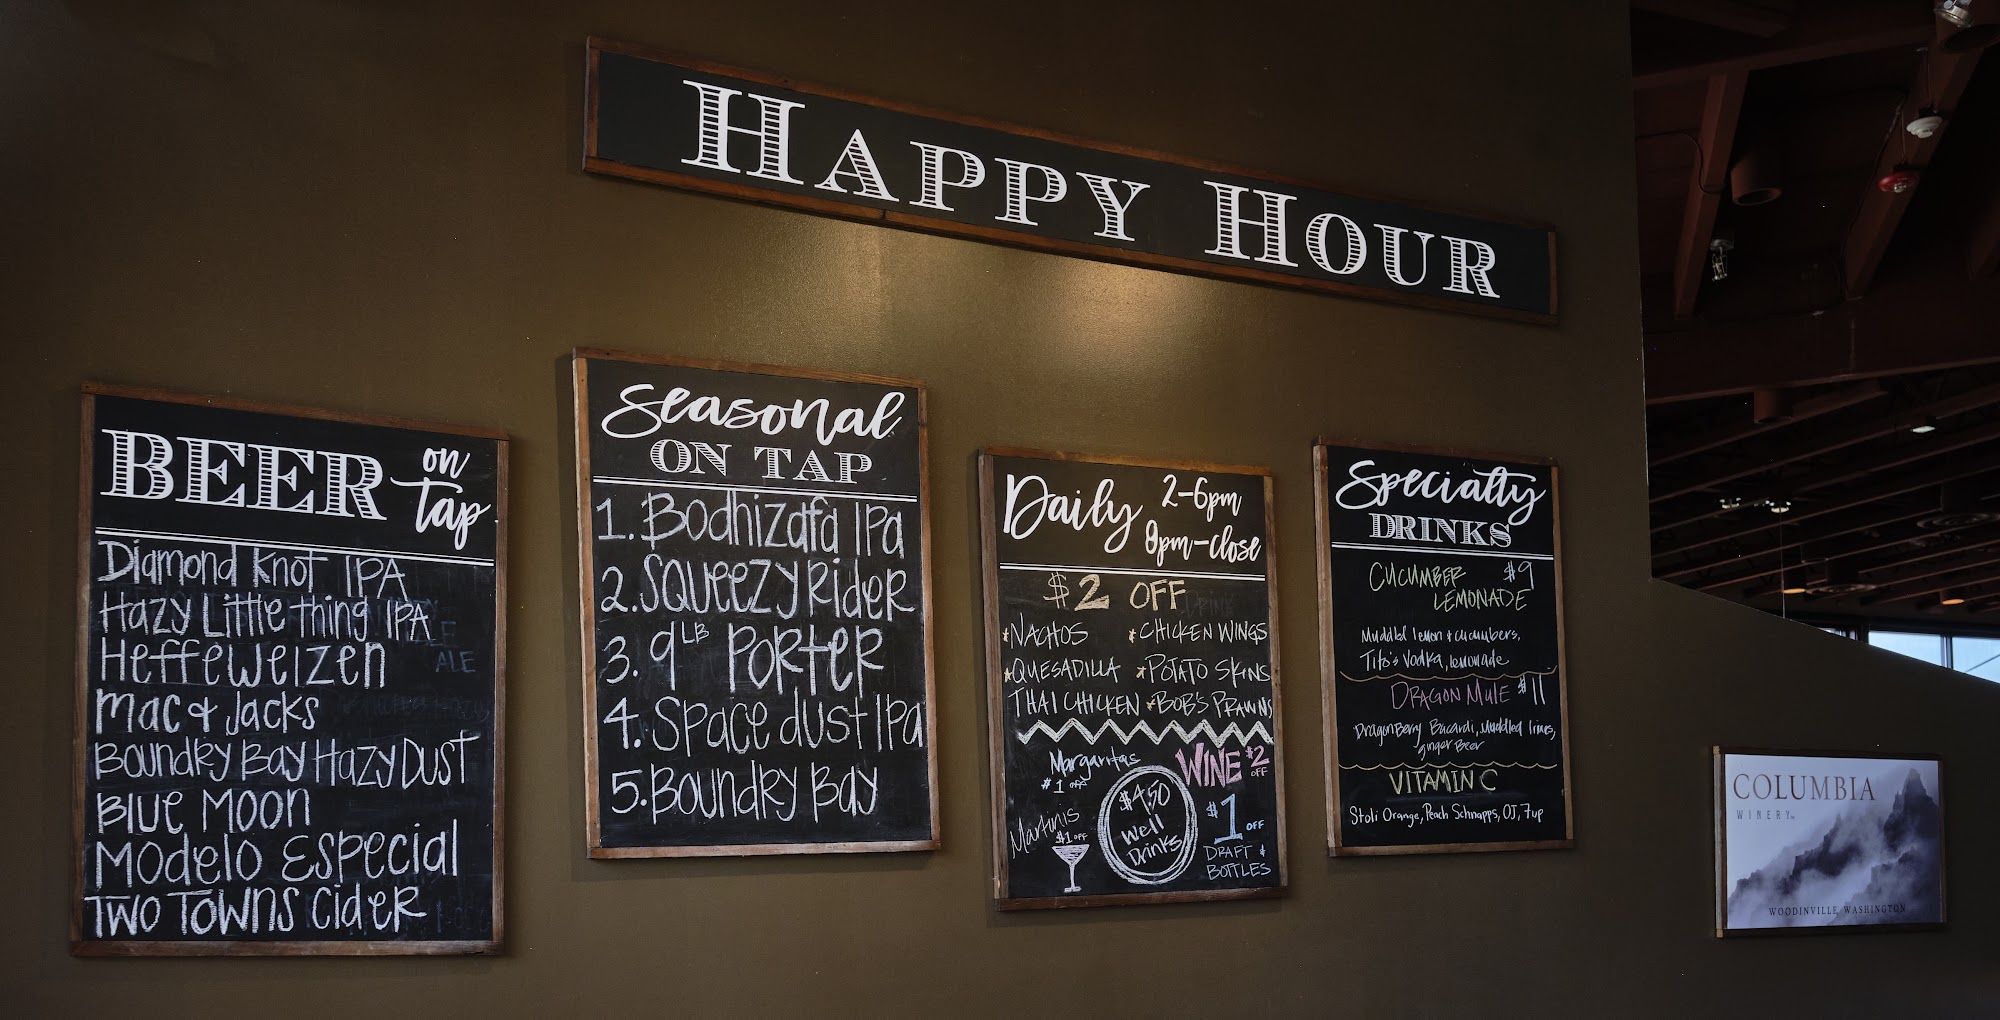 HAPPY HOUR
BEER on tap
Diamond Knot IPA
Hazy Little thing IPA
Heffeweizen
Mac & Jacks
Boundry Bay Hazy Dust
Blue Moon
Modelo Especial
Two Towns Cider
ALE
Seasonal
ON TAP
1. Bodhizafa IPa
2. Squeezy Rider
3. 9LB Porter
4. Space dust IPa
5. Boundry Bay
Daily 2-6pm
8pm-close
$2 OFF
*NACHOS *CHICKEN WINGS
*QUESADILLA *POTATO SKINS
THAI CHICKEN *BOB'S PRAWNS
Margaritas
$1 off
WINE $2
OFF
Martinis
$1 OFF
$4.50
Well
Drinks
$1 OFF
DRAFT &
BOTTLES
Specialty
DRINKS
CUCUMBER $9
LEMONADE
Muddled lemon & cucumbers,
Tito's Vodka, lemonade
DRAGON MULE $11
DragonBerry Bacardi, Muddled limes,
ginger Beer
VITAMIN C
Stoli Orange, Peach Schnapps, OJ, 7up
COLUMBIA
WINERY
WOODINVILLE WASHINGTON